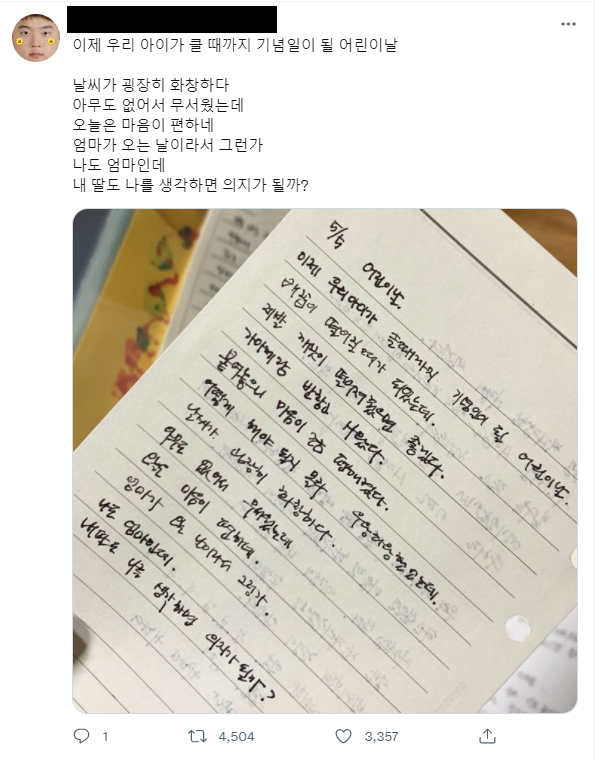 이제 우리 아이가 클 때까지 기념일이 될 어린이날
날씨가 굉장히 화창하다
아무도 없어서 무서웠는데
오늘은 마음이 편하네
엄마가 오는 날이라서 그런가
나도 엄마인데
내 딸도 나를 생각하면 의지가 될까?
5/5 어린이날.
이제 우리아이가 클때까지 기념일이 될 어린이날.
배꼽이 떨어질때가 되었는데.
제발 개꼽이 떨어져줬으면 좋겠다.
거야메랑 반창고 샀었다.
붙여놓으니 마음이 좀 편해졌다.
어떻게 해야 될지 몰라 우왕좌왕했었는데.
날씨가 굉장히 화창하다.
아무도 없어서 무서웠는데
오늘은 마음이 편하네.
엄마가 오는 날이라서 그런가.
나도 엄마인데.
내딸도 나를 생각하면 의지가 될까?
1
4,504
3,357